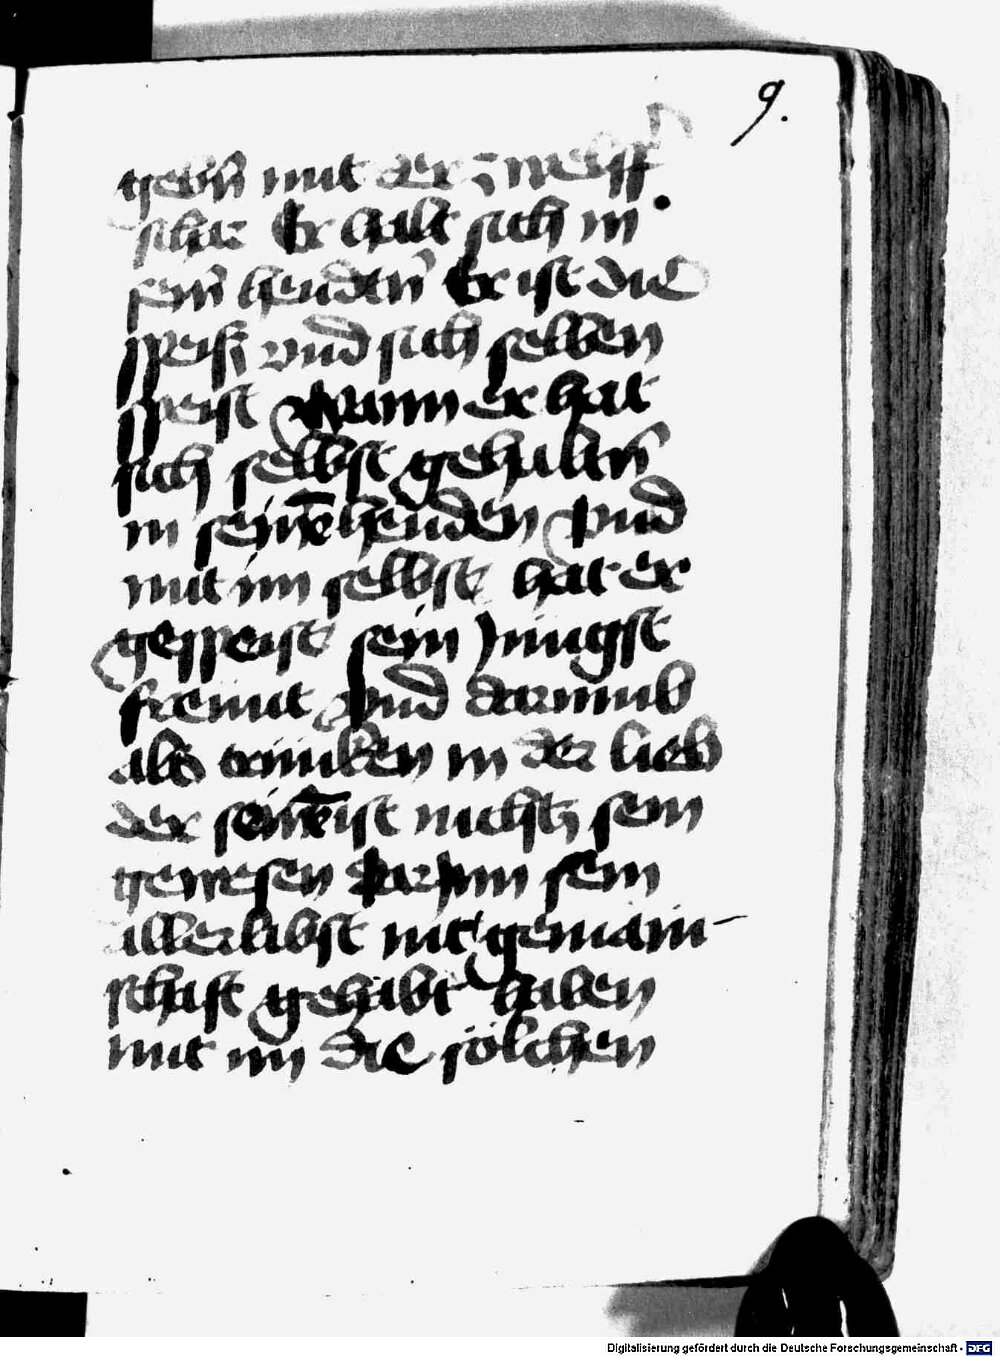 9.
gebn̄ mit der zwelff
schar Er halt sich in
sein̄ hendn̄ Er ist die
speiß vnd sich selben
speist Wann er hat
sich selbst gehaltn̄
in seinē henden vnd
mit im selbst hat er
gespeist sein jungst
freint vnd darumb
als trincken in der lieb
der seinē ist nichtz sein
gewesen darynn sein
allerlibst nit gemain-
schaft gehabt haben
mit im die sölchen
Digitalisierung gefördert durch die Deutsche Forschungsgemeinschaft - DFG